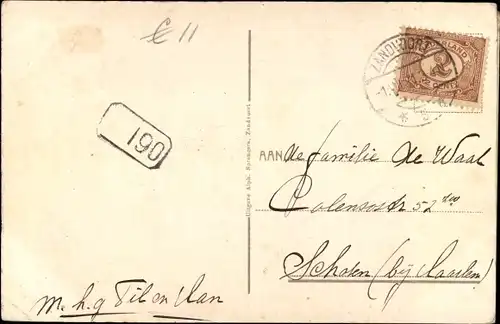 € 11
ZANDVOORT
NEDERLAND
2
CENT
190
Uitgave Alph. Sprengers, Zandvoort
AAN de familie de Waal
Colensostr 52 roo
Schoten (bij Haarlem)
M. h. g Til en Han